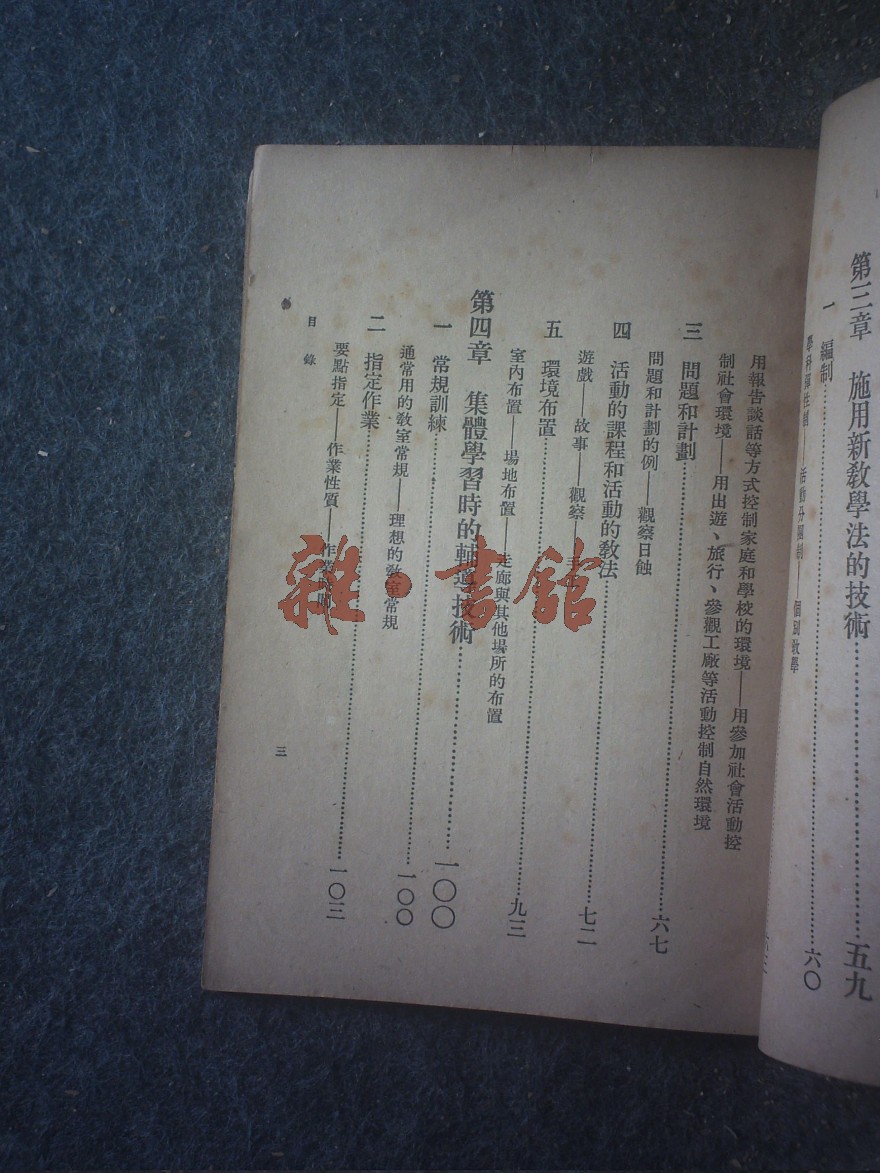 第三章　施用新敎學法的技術……五九
一　編制……六〇
個別敎學
用報告談話等方式控制家庭和學校的環境——用參加社會活動控
制社會環境——用出遊、旅行、參觀工廠等活動控制自然環境
三　問題和計劃……六七
問題和計劃的例——觀察日蝕
四　活動的課程和活動的敎法……七二
遊戲——故事——觀察——
五　環境布置……九三
室內布置——場地布置——走廊與其他場所的布置
第四章　集體學習時的輔導技術……一〇〇
一　常規訓練……一〇〇
通常用的敎室常規——理想的敎室常規
二　指定作業……一〇三
要點指定——作業性質——作業時間
目錄
三
雜·書館